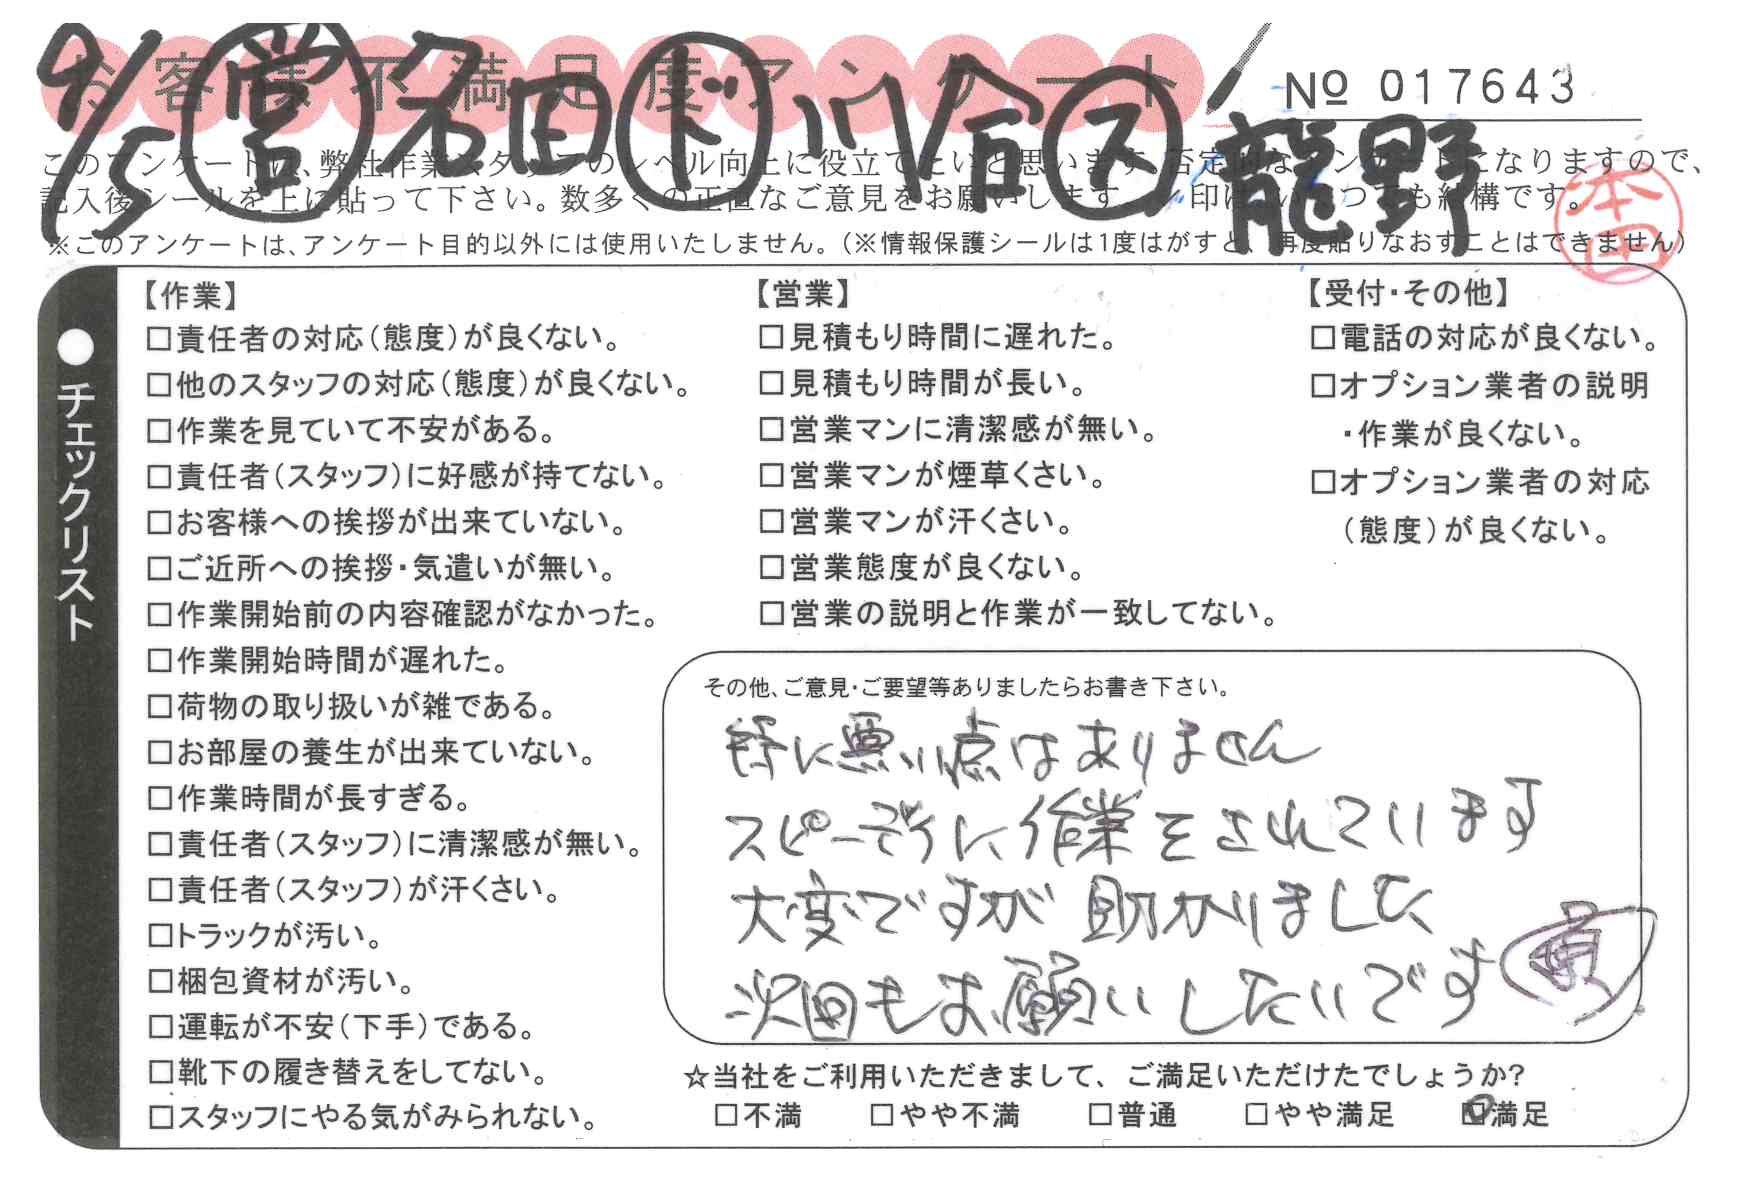 お客様不満足度アンケート
№ 017643
9/5 営 名田 ド 川合 ス 龍野
このアンケートは、弊社作業スタッフのレベル向上に役立てたいと思います。否定的なアンケートになりますので、
記入後シールを上に貼って下さい。数多くの正直なご意見をお願いします。 印はいくつでも結構です。
※このアンケートは、アンケート目的以外には使用いたしません。(※情報保護シールは1度はがすと、再度貼りなおすことはできません)
本田
●チェックリスト
【作業】
□責任者の対応(態度)が良くない。
□他のスタッフの対応(態度)が良くない。
□作業を見ていて不安がある。
□責任者(スタッフ)に好感が持てない。
□お客様への挨拶が出来ていない。
□ご近所への挨拶・気遣いが無い。
□作業開始前の内容確認がなかった。
□作業開始時間が遅れた。
□荷物の取り扱いが雑である。
□お部屋の養生が出来ていない。
□作業時間が長すぎる。
□責任者(スタッフ)に清潔感が無い。
□責任者(スタッフ)が汗くさい。
□トラックが汚い。
□梱包資材が汚い。
□運転が不安(下手)である。
□靴下の履き替えをしてない。
□スタッフにやる気がみられない。
【営業】
□見積もり時間に遅れた。
□見積もり時間が長い。
□営業マンに清潔感が無い。
□営業マンが煙草くさい。
□営業マンが汗くさい。
□営業態度が良くない。
□営業の説明と作業が一致してない。
【受付・その他】
□電話の対応が良くない。
□オプション業者の説明
・作業が良くない。
□オプション業者の対応
(態度)が良くない。
その他、ご意見・ご要望等ありましたらお書き下さい。
特に悪い点はありません
スピーディに作業をされています
大変ですが助かりました
次回もお願いしたいです
☆当社をご利用いただきまして、ご満足いただけたでしょうか?
□不満 □やや不満 □普通 □やや満足 □満足